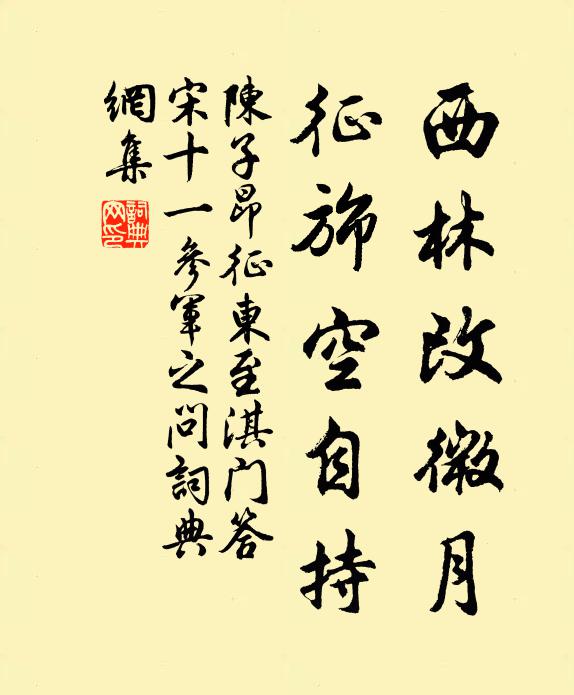 西林改微月
征旆空自持
陳子昂征東至淇門答
宋十一參軍之問詞典
網集
詞典
网印